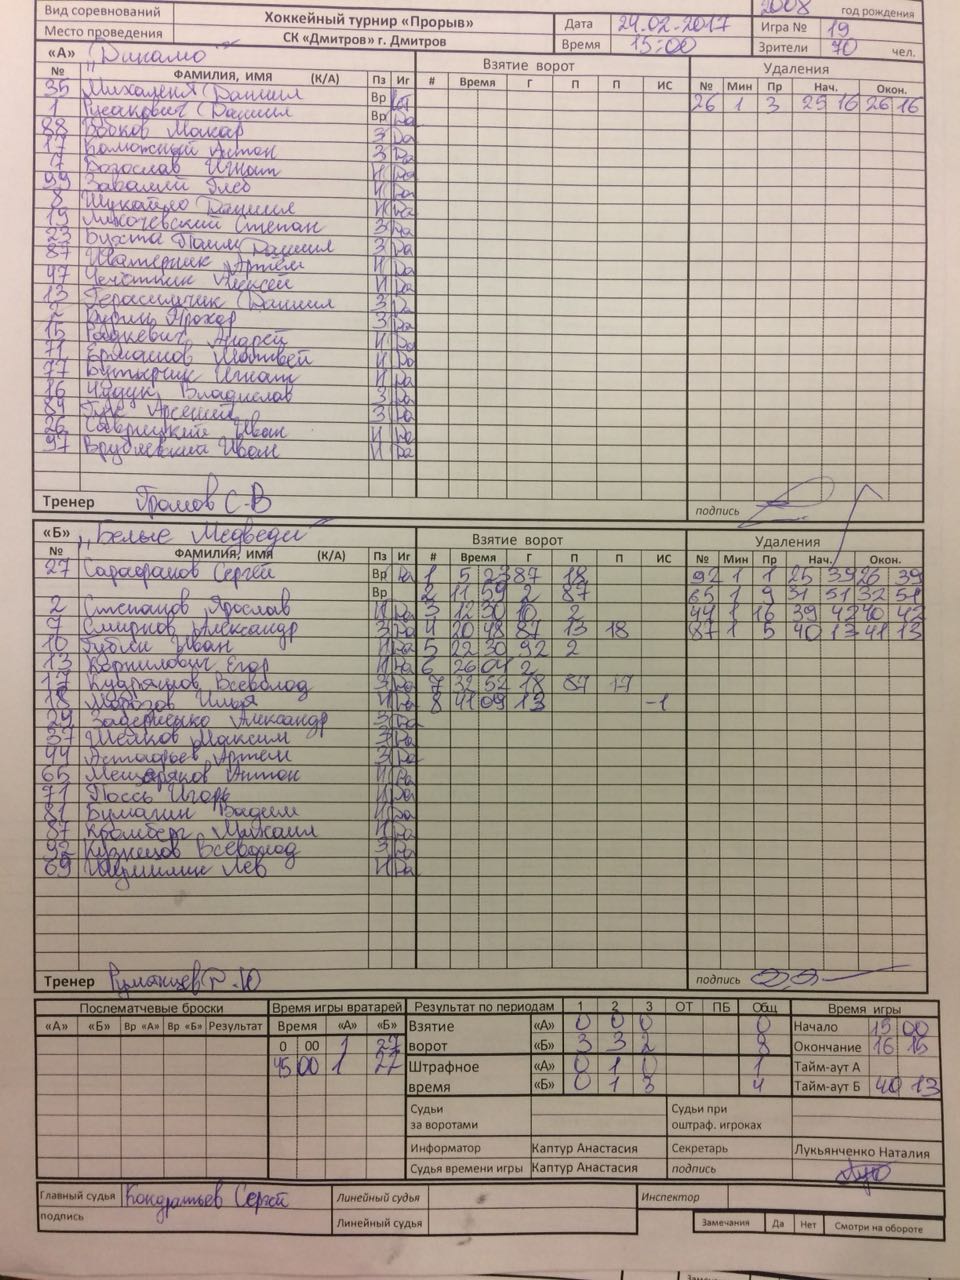 Вид соревнований Хоккейный турнир «Прорыв» Дата 24.02.2017 2008 год рождения
Место проведения СК «Дмитров» г. Дмитров Время 15:00 Игра № 19
Зрители 70 чел.
«А» „Динамо" Взятие ворот Удаления
№ ФАМИЛИЯ, ИМЯ (К/А) Пз Иг # Время Г П П ИС № Мин Пр Нач. Окон.
35 Даниил Вр 26 1 3 25 16 26 16
1 Русакович Даниил Вр Да
88 Макар З Да
17 Антон З Да
7 Богослав Игнат Н Да
99 Глеб Н Да
8 Шукайло Даниил Н Да
19 Степан З Да
23 Бухта Даниил З Да
87 Артём Н Да
47 Алексей Н Да
13 Герасимчик Даниил З Да
2 Прохор З Да
15 Радкевич Андрей Н Да
71 Ермаков Матвей Н Да
77 Бутырчик Игнат Н Да
16 Владислав З Да
84 Гук Арсений З Да
26 Савицкий Иван Н Да
97 Врублевский Иван Н Да
Тренер Громов С.В подпись
«Б» „Белые Медведи" Взятие ворот Удаления
№ ФАМИЛИЯ, ИМЯ (К/А) Пз Иг # Время Г П П ИС № Мин Пр Нач. Окон.
27 Сарафанов Сергей Вр Да 1 5 23 87 18 92 1 1 25 39 26 39
Вр 2 11 59 2 87 65 1 9 31 51 32 51
2 Степанов Ярослав Н Да 3 12 30 10 2 44 1 16 39 42 40 42
7 Смирнов Александр З Да 4 20 48 87 13 18 87 1 5 40 13 41 13
10 Губин Иван Н Да 5 22 30 92 2
13 Корнилович Егор Н Да 6 26 04 2
17 Кудряшов Всеволод З Да 7 32 52 18 87 17
18 Морозов Илья Н Да 8 41 09 13 -1
29 Александр З Да
37 Шейков Максим З Да
44 Астафьев Артём З Да
65 Мещеряков Антон Н Да
71 Лоссь Игорь Н Да
81 Бумагин Вадим Н Да
87 Кромберг Михаил Н Да
92 Кузнецов Всеволод З Да
69 Лев Н Да
Тренер Румянцев Р.Ю подпись
Послематчевые броски Время игры вратарей Результат по периодам 1 2 3 ОТ ПБ Общ Время игры
«А» «Б» Вр «А» Вр «Б» Результат Время «А» «Б» Взятие «А» 0 0 0 0 Начало 15 00
0 00 1 27 ворот «Б» 3 3 2 8 Окончание 16 15
45 00 1 27 Штрафное «А» 0 1 0 1 Тайм-аут А
время «Б» 0 1 3 4 Тайм-аут Б 40 13
Судьи Судьи при
за воротами оштраф. игроках
Информатор Каптур Анастасия Секретарь Лукьянченко Наталия
Судья времени игры Каптур Анастасия подпись
Главный судья Кондратьев Сергей Линейный судья Инспектор
подпись Линейный судья Замечания Да Нет Смотри на обороте
Замечания Да